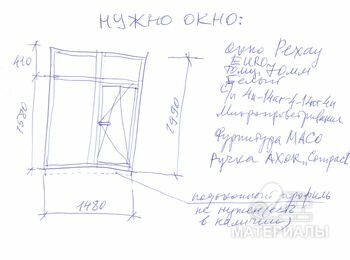 НУЖНО ОКНО:
окно Рехау
EURO
толщ. 70мм
Белый
с/п 4и-14аг-4-14аг-4и
Микропроветривание
Фурнитура МАСО
ручка AXOR „Compact"
410
1580
1990
1480
подоконный профиль
не нужен (есть
в наличии)
МАТЕРИАЛЫ